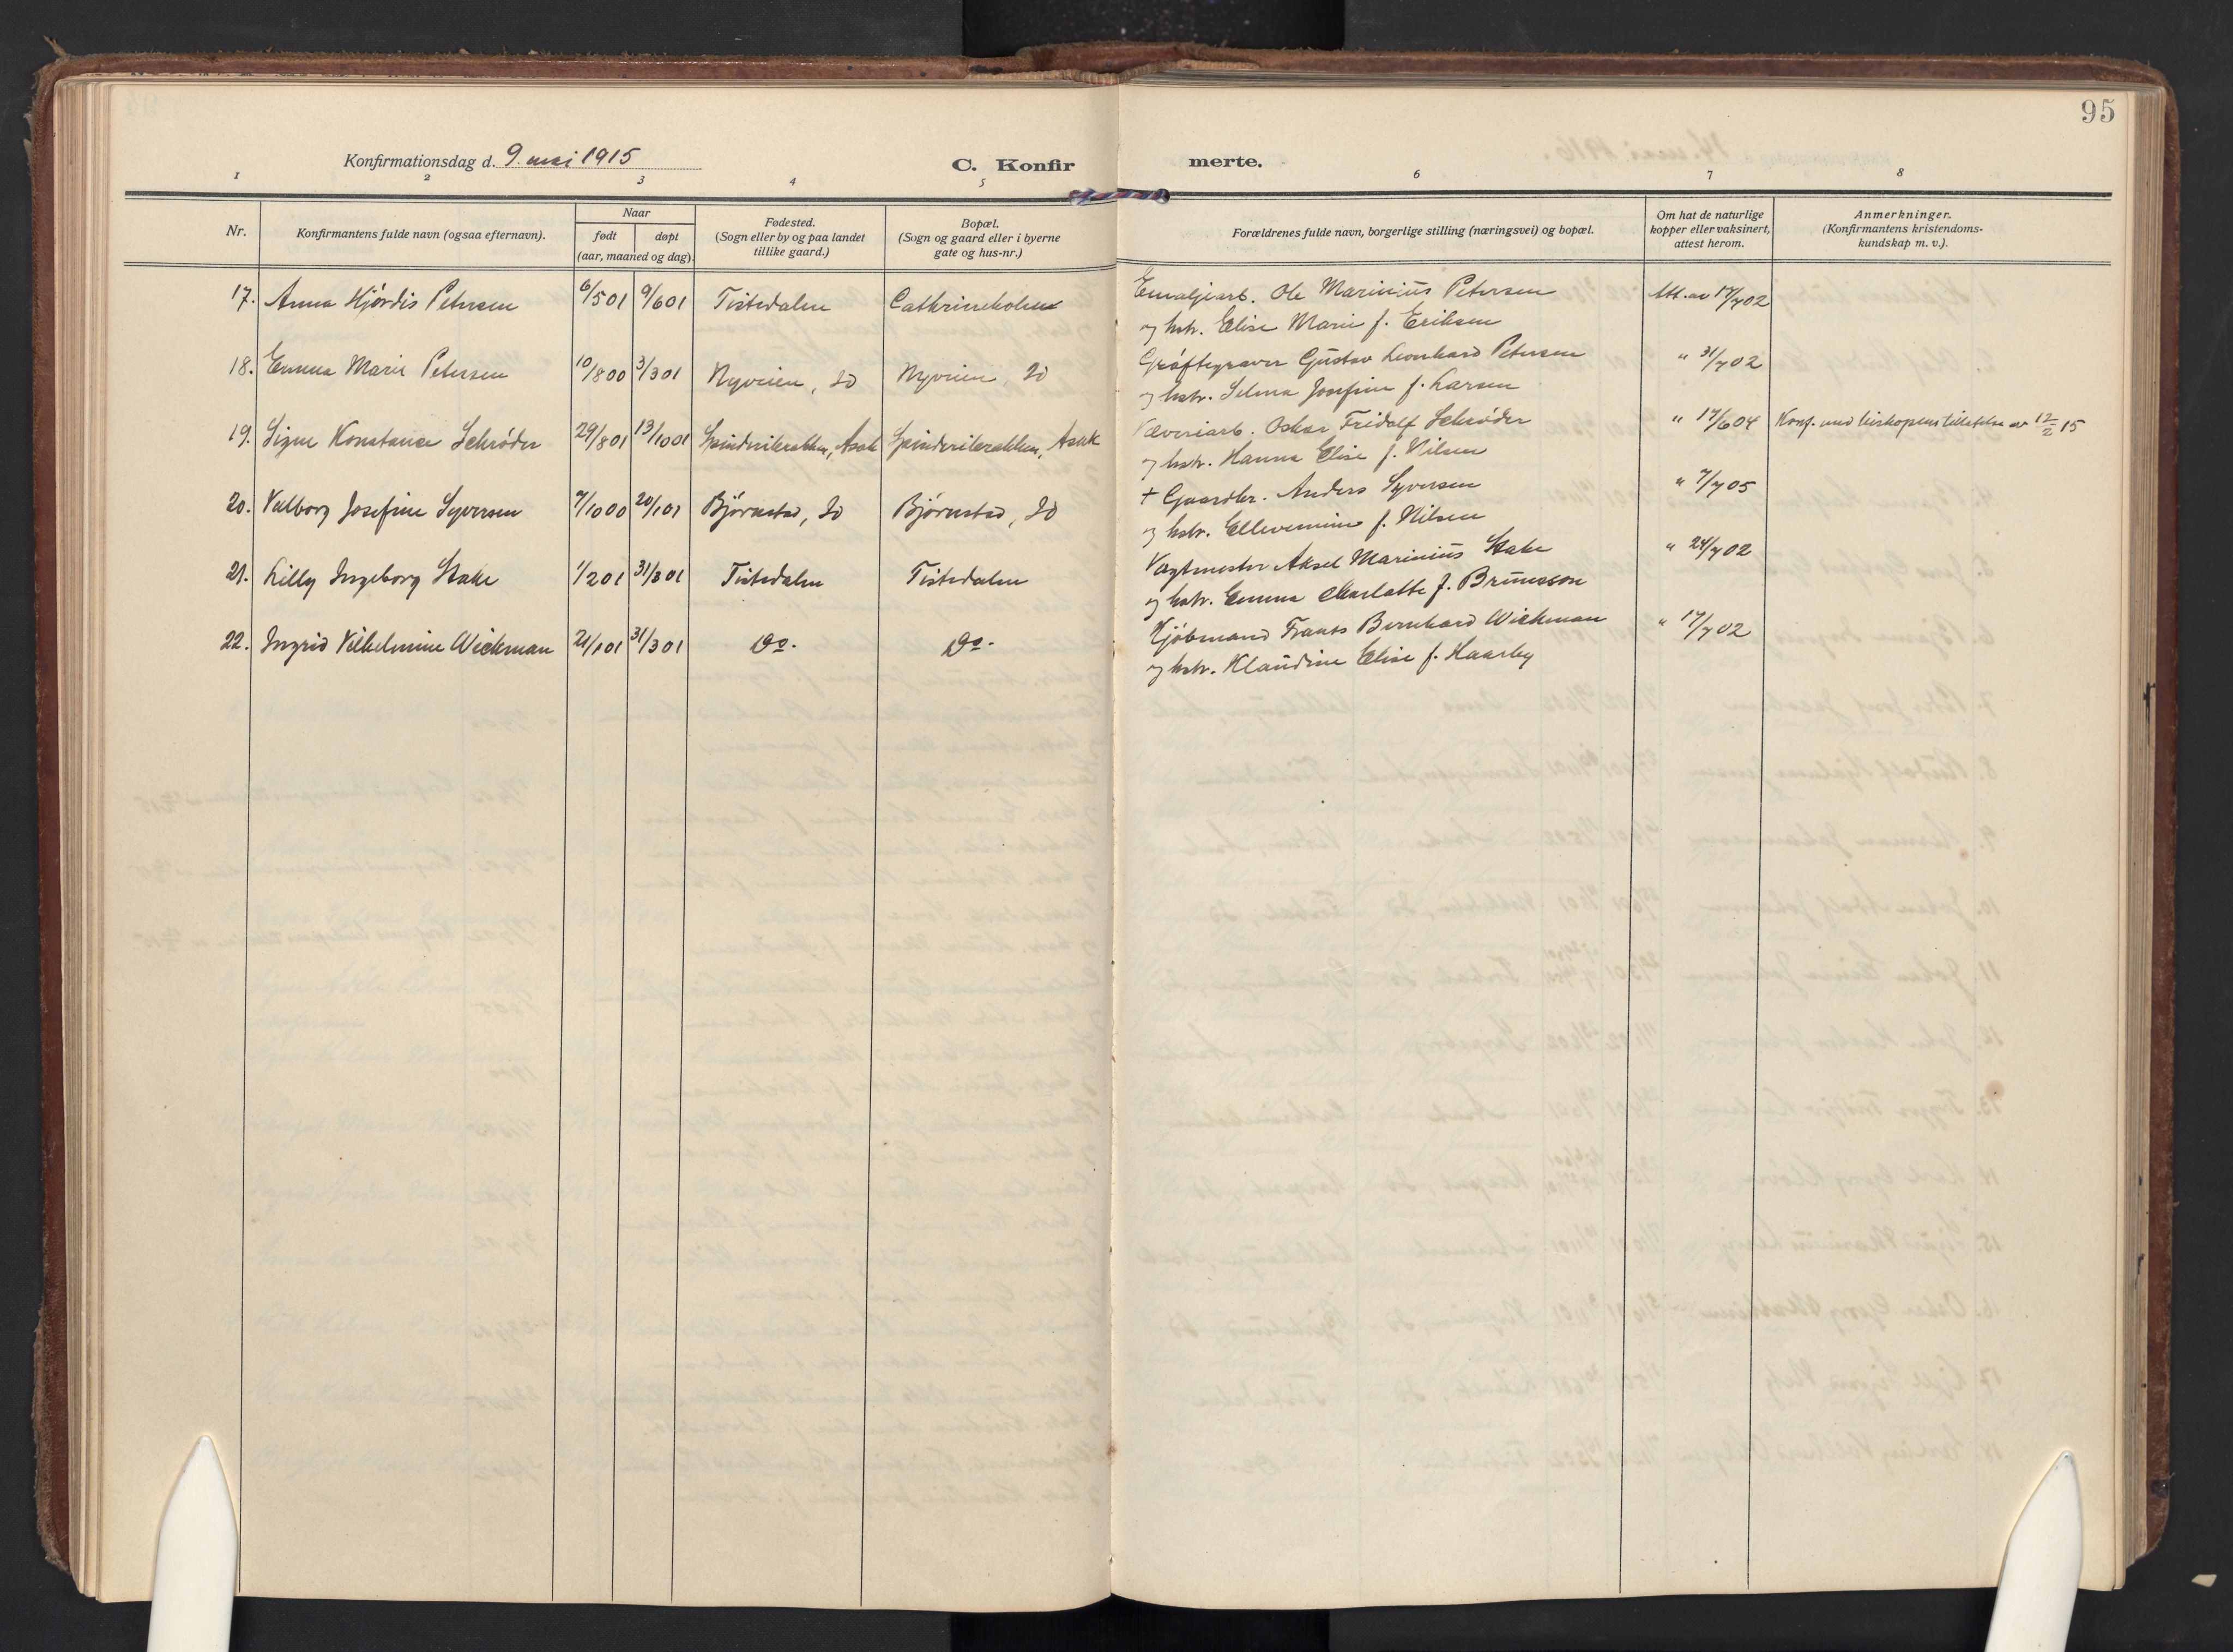 95
Konfirmationsdag d. 9. mai 1915
C. Konfirmerte.
1 2 3 4 5 6 7 8
Nr.
Konfirmantens fulde navn (ogsaa efternavn).
Naar
født
døpt
(aar, maaned og dag).
Fødested.
(Sogn eller by og paa landet
tillike gaard.)
Bopæl.
(Sogn og gaard eller i byerne
gate og hus-nr.)
Forældrenes fulde navn, borgerlige stilling (næringsvei) og bopæl.
Om hat de naturlige
kopper eller vaksinert,
attest herom.
Anmerkninger.
(Konfirmantens kristendoms-
kundskap m. v.).
17. Anna Hjørdis Petersen 6/5 01 9/6 01 Tistedalen Cathrineholm Emaljearb. Ole Marinius Petersen Att. av 17/7 02
og hstr. Elise Marie f. Eriksen
18. Emma Marie Petersen 10/8 00 3/3 01 Nyveien, Id Nyveien, Id Grøftegraver Gustav Leonhard Petersen " 31/7 02
og hstr. Selma Josefine f. Larsen
19. Signe Konstance Schrøder 29/8 01 13/10 01 Spinderibrakken, Asak Spinderibrakken, Asak Væveriarb. Oskar Fridolf Schrøder " 17/6 04 Konf. med biskopens tillatelse av 12/2 15
og hstr. Hanna Elise f. Nilsen
20. Valborg Josefine Syversen 7/10 00 20/1 01 Bjørnstad, Id Bjørnstad, Id + Gaardbr. Anders Syversen " 7/7 05
og hstr. Ellevemine f. Nilsen
21. Lilly Ingeborg Stake 1/2 01 31/3 01 Tistedalen Tistedalen Vagtmester Aksel Marinius Stake " 24/7 02
og hstr. Emma Charlotte f. Brunsson
22. Ingrid Vilhelmine Wickman 21/1 01 31/3 01 Do. Do. Kjøbmand Frants Bernhard Wickman " 17/7 02
og hstr. Klaudine Elise f. Haarby